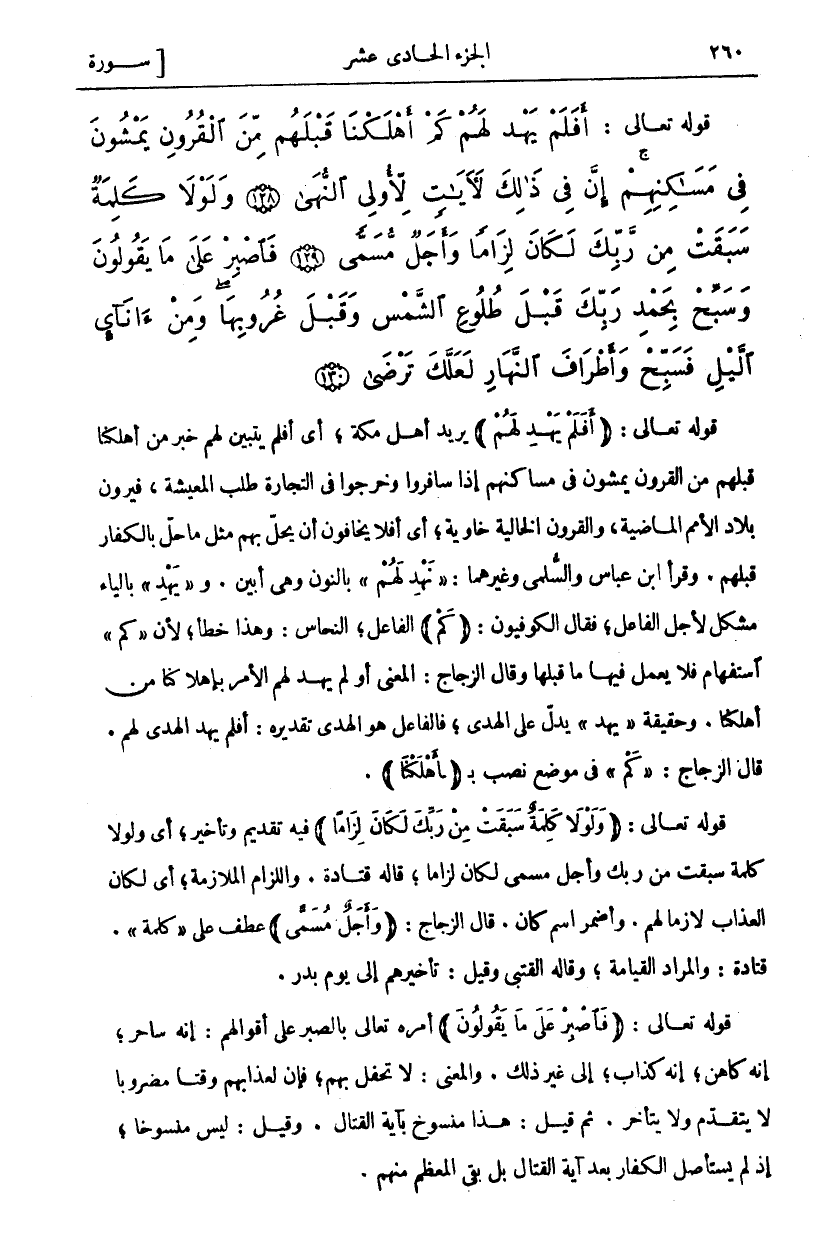 ٢٦٠ الجزء الحادى عشر [ ســورة
قوله تعـالى : أَفَلَمْ يَهْدِ لَهُمْ كَمْ أَهْلَكْنَا قَبْلَهُم مِّنَ ٱلْقُرُونِ يَمْشُونَ
فِى مَسَـٰكِنِهِمْ ۚ إِنَّ فِى ذَٰلِكَ لَأَيَـٰتٍ لِّأُولِى ٱلنُّهَىٰ ﴿١٢٨﴾ وَلَوْلَا كَلِمَةٌ
سَبَقَتْ مِن رَّبِّكَ لَكَانَ لِزَامًا وَأَجَلٌ مُّسَمًّى ﴿١٢٩﴾ فَٱصْبِرْ عَلَىٰ مَا يَقُولُونَ
وَسَبِّحْ بِحَمْدِ رَبِّكَ قَبْلَ طُلُوعِ ٱلشَّمْسِ وَقَبْلَ غُرُوبِهَا ۖ وَمِنْ ءَانَآيِٕ
ٱلَّيْلِ فَسَبِّحْ وَأَطْرَافَ ٱلنَّهَارِ لَعَلَّكَ تَرْضَىٰ ﴿١٣٠﴾
قوله تعـالى : ﴿ أَفَلَمْ يَهْـدِ لَهُمْ ﴾ يريد أهـل مكة ؛ أى أفلم يتبين لهم خبر من أهلكنا
قبلهم من القرون يمشون فى مساكنهم إذا سافروا وخرجوا فى التجارة طلب المعيشة ، فيرون
بلاد الأمم المـاضية ، والقرون الخالية خاوية ؛ أى أفلا يخافون أن يحلّ بهم مثل ما حلّ بالكفار
قبلهم . وقرأ ابن عباس والسُّلمى وغيرهما : « نَهْدِ لَهُمْ » بالنون وهى أبين . و « يَهْدِ » بالياء
مشكل لأجل الفاعل ؛ فقال الكوفيون : ﴿ كَمْ ﴾ الفاعل ؛ النحاس : وهذا خطأ ؛ لأن « كم »
ٱستفهام فلا يعمل فيهـا ما قبلها وقال الزجاج : المعنى أو لم يهـد لهم الأمر بإهلاكنا من
أهلكنا . وحقيقة « يهد » يدلّ على الهدى ؛ فالفاعل هو الهدى تقديره : أفلم يهد الهدى لهم .
قال الزجاج : « كَمْ » فى موضع نصب بـ ﴿ ـأَهْلَكْنَا ﴾ .
قوله تعـالى : ﴿ وَلَوْلَا كَلِمَةٌ سَبَقَتْ مِنْ رَبِّكَ لَكَانَ لِزَامًا ﴾ فيه تقديم وتأخير ؛ أى ولولا
كلمة سبقت من ربك وأجل مسمى لكان لزاما ؛ قاله قتـادة . واللزام الملازمة ؛ أى لكان
العذاب لازما لهم . وأضمر اسم كان . قال الزجاج : ﴿ وَأَجَلٌ مُسَمًّى ﴾ عطف على « كلمة » .
قتادة : والمراد القيامة ؛ وقاله القتبى وقيل : تأخيرهم إلى يوم بدر .
قوله تعـالى : ﴿ فَٱصْبِرْ عَلَى مَا يَقُولُونَ ﴾ أمره تعالى بالصبر على أقوالهم : إنه ساحر ؛
إنه كاهن ؛ إنه كذاب ؛ إلى غير ذلك . والمعنى : لا تحفل بهم ؛ فإن لعذابهم وقتـا مضروبا
لا يتقـدّم ولا يتأخر . ثم قيل : هـذا منسوخ بآية القتال . وقيـل : ليس منسوخا ؛
إذ لم يستأصل الكفار بعد آية القتال بل بقى المعظم منهم .